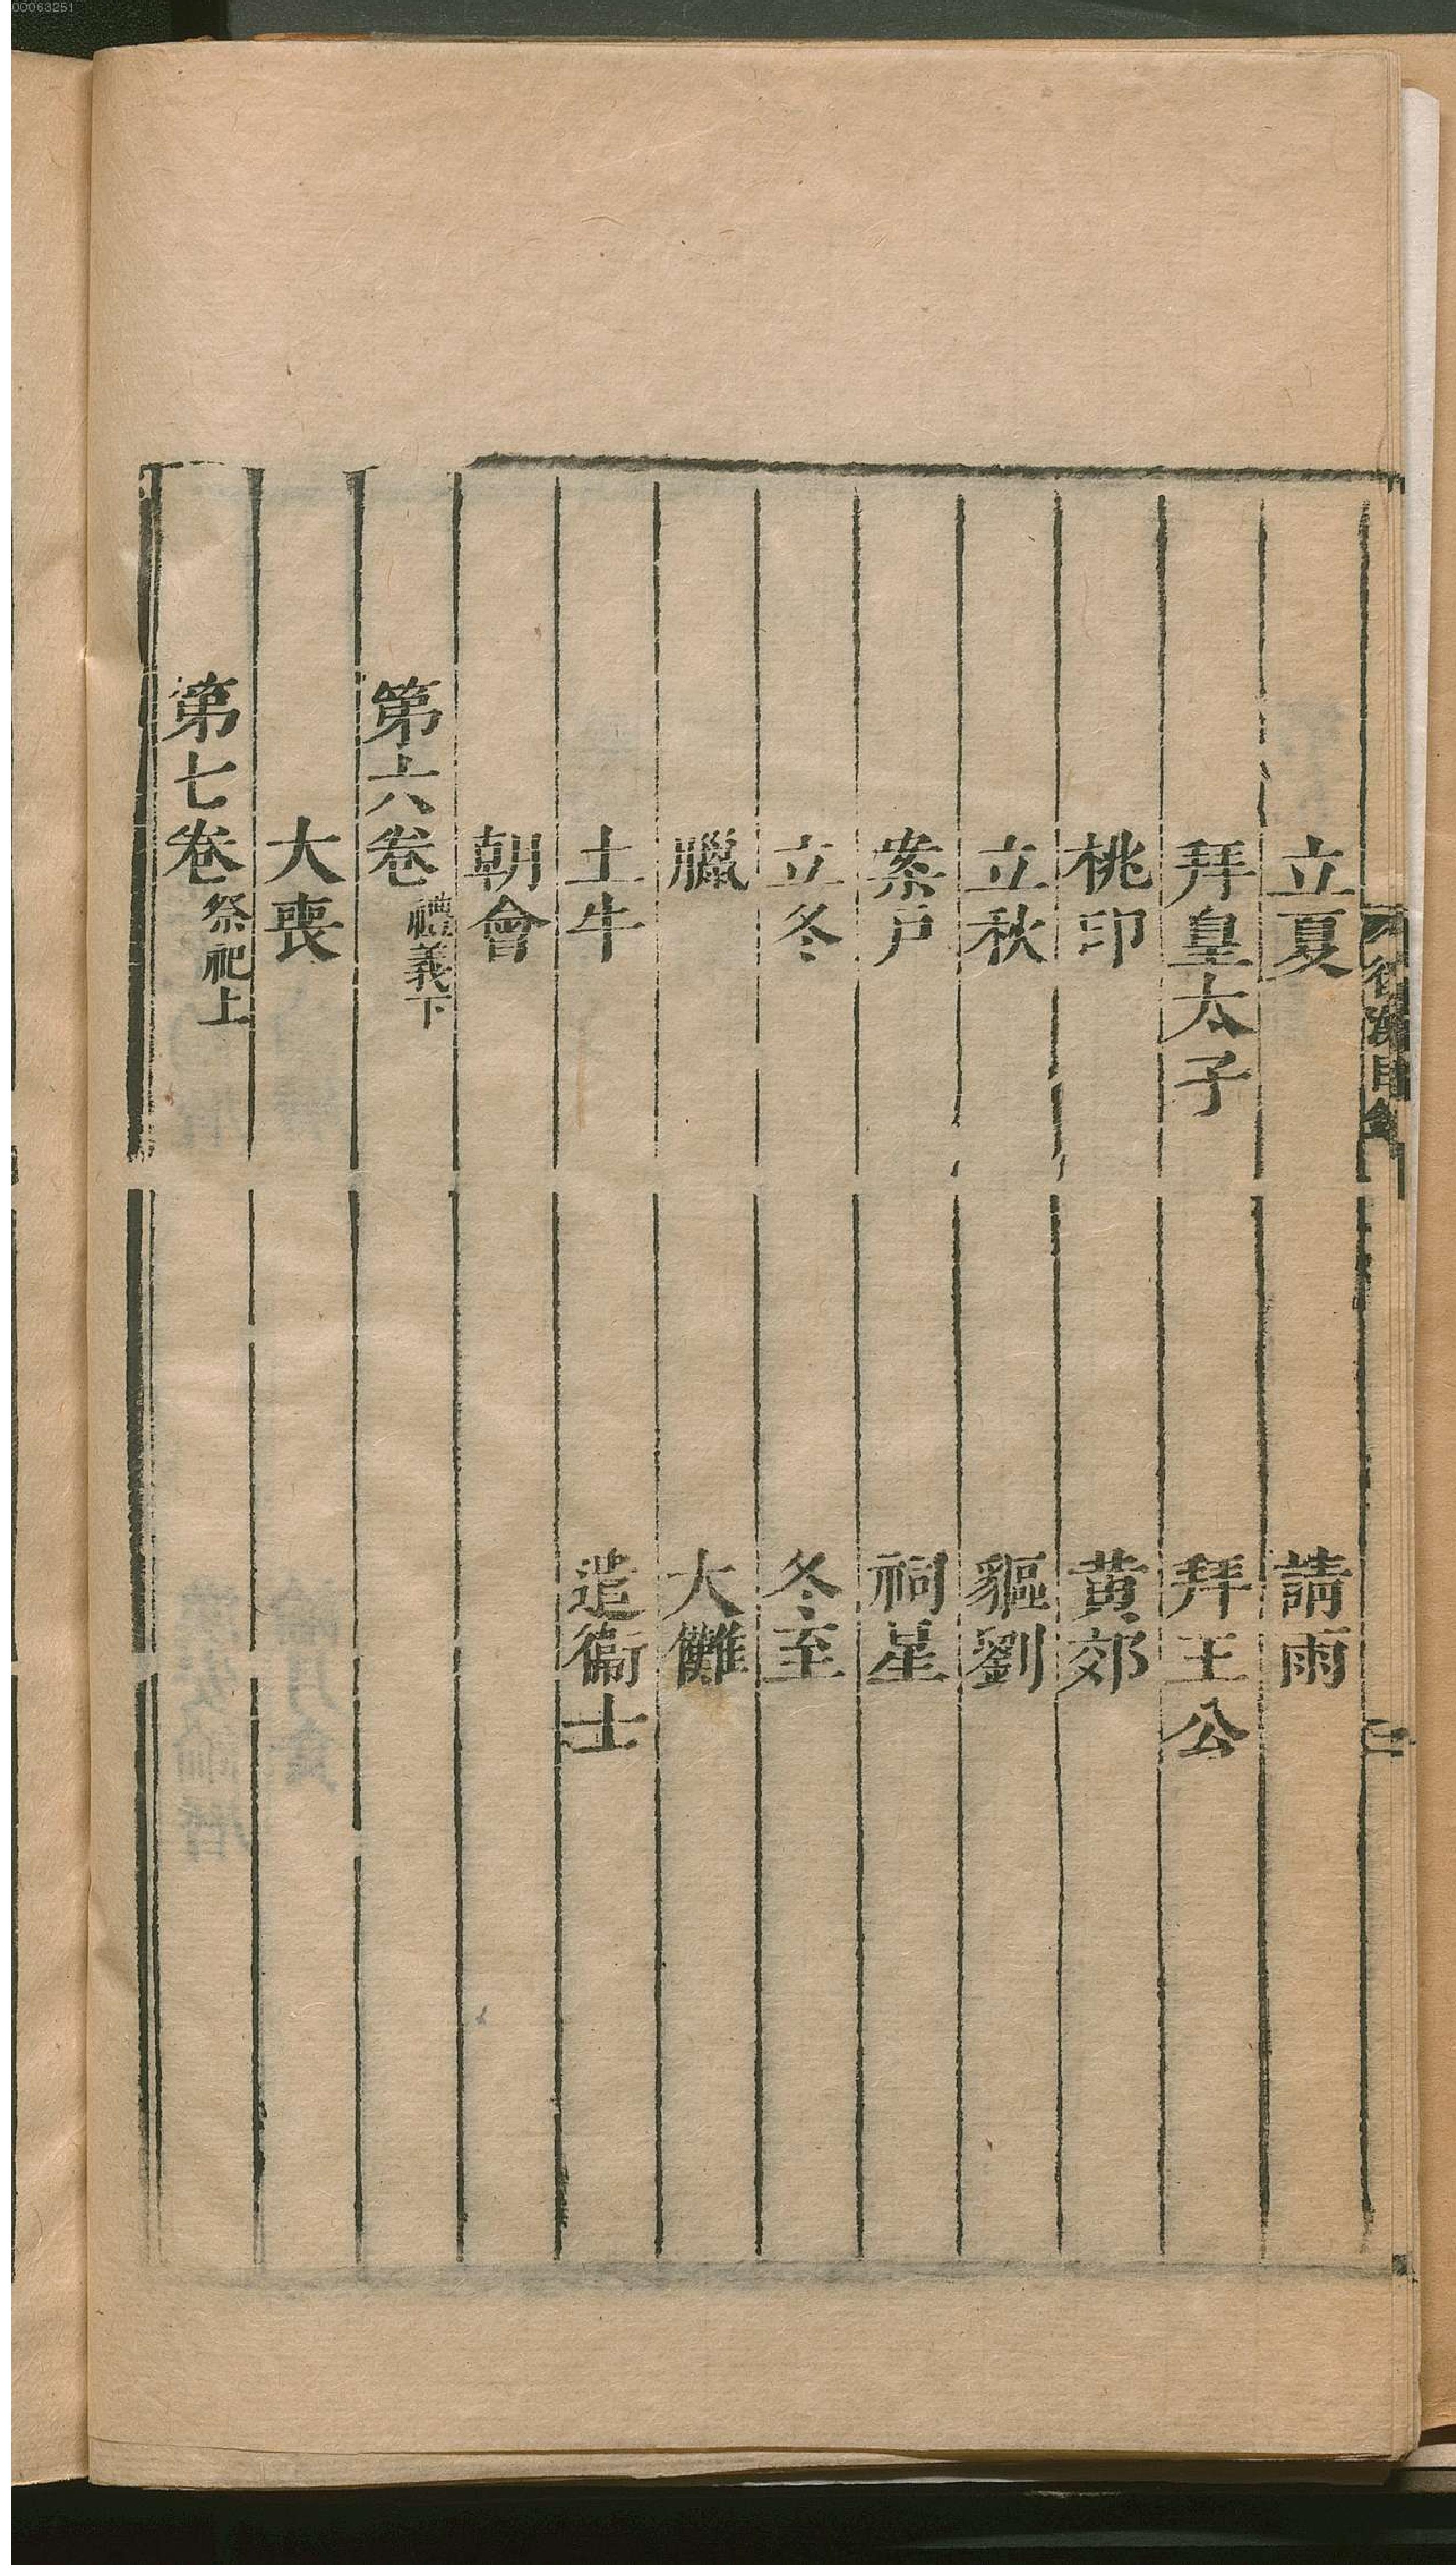 00063251
立夏 請雨
拜皇太子 拜王公
桃印 黃郊
立秋 貙劉
案戶 祠星
立冬 冬至
臘 大儺
土牛 遣衞士
朝會
第六卷 禮義下
大喪
第七卷 祭祀上